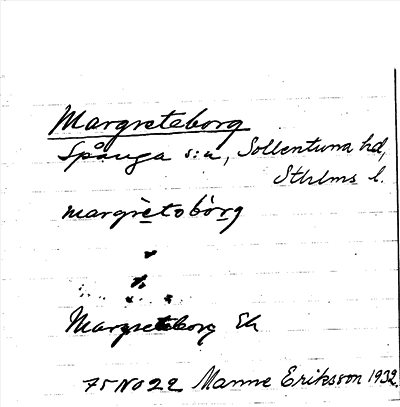 Margreteborg
Spånga s:n, Sollentuna hd,
Sthlms l.
margrètobòrg
Margreteborg Ek
75 NO 22 Manne Eriksson 1932.